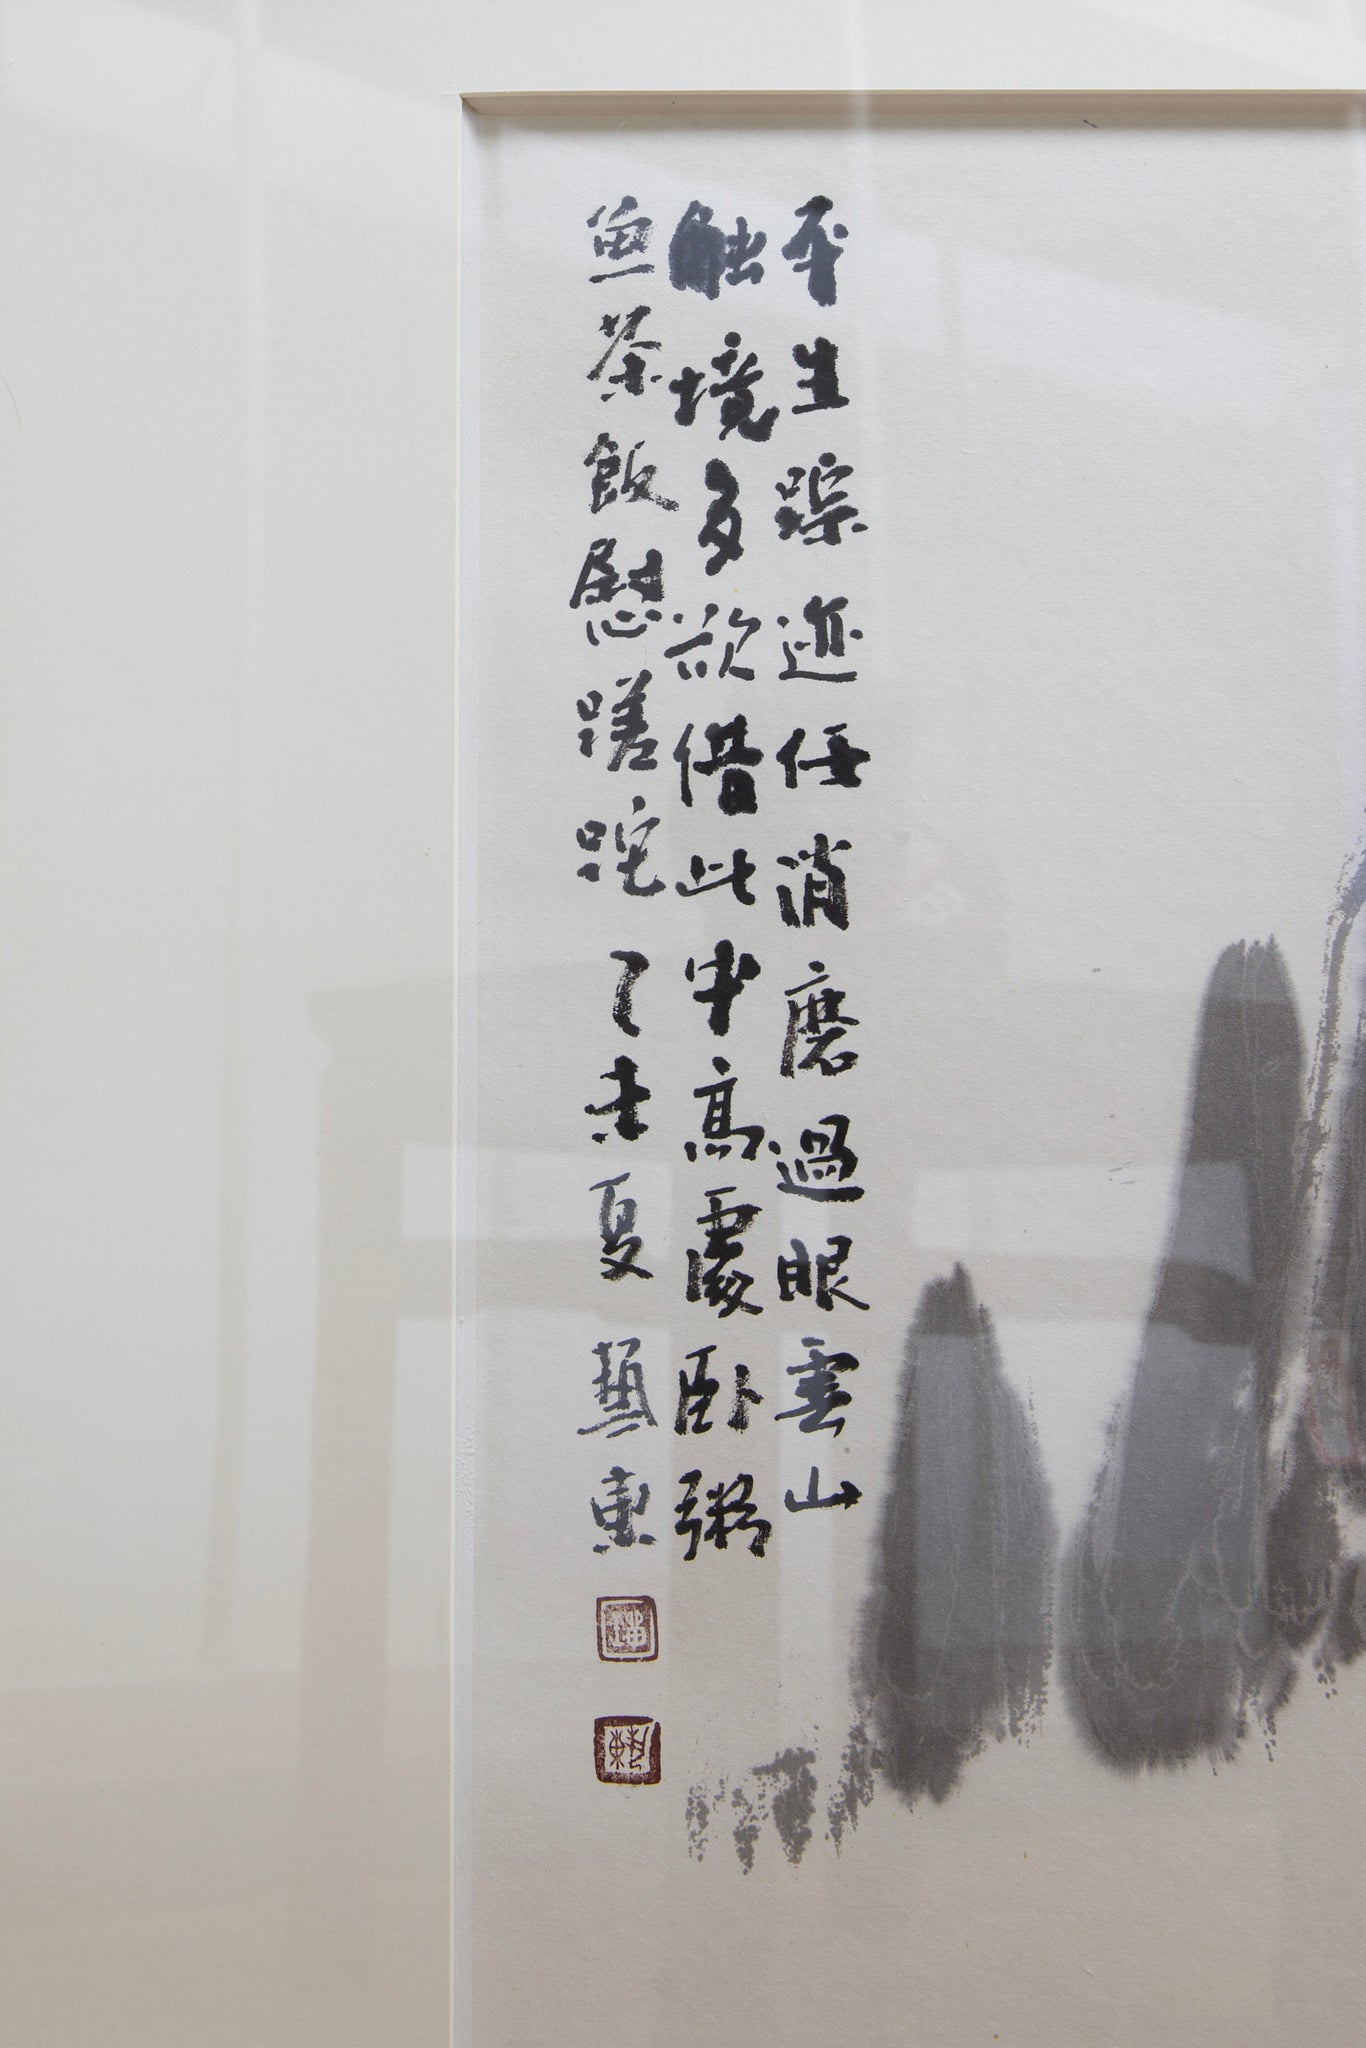 平生踪迹任消磨過眼雲山
触境多欲借此中高處卧粥
魚茶飯慰蹉跎丁未夏藝東